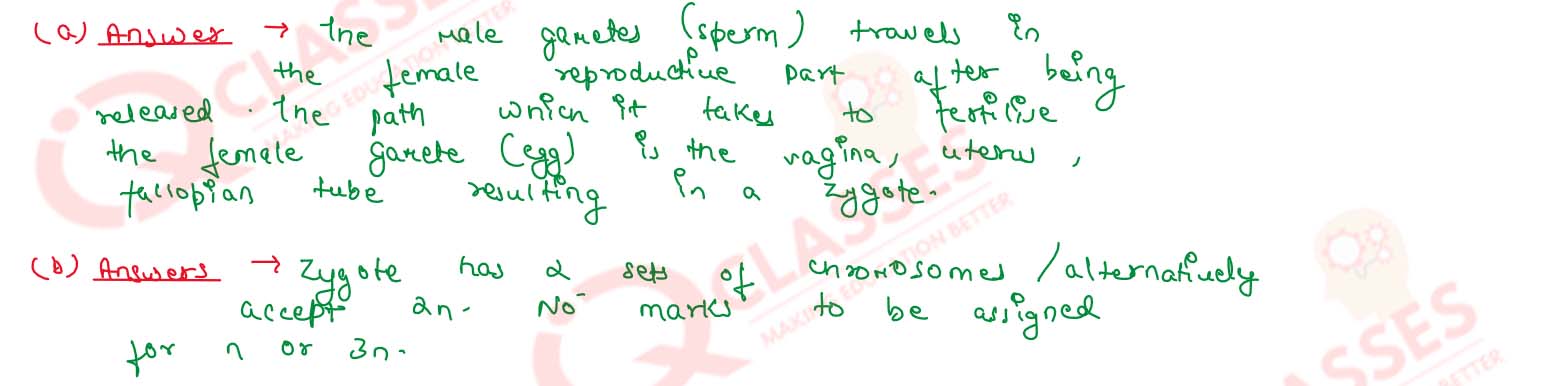 (a) Answer → The male gametes (sperm) travels in
the female reproductive part after being
released. The path which it takes to fertilise
the female gamete (egg) is the vagina, uterus,
fallopian tube resulting in a zygote.
(b) Answers → Zygote has 2 sets of chromosomes / alternatively
accept 2n. No marks to be assigned
for n or 3n.
IQ CLASSES
MAKING EDUCATION BETTER
IQ CLASSES
MAKING EDUCATION BETTER
CLASSES
BETTER